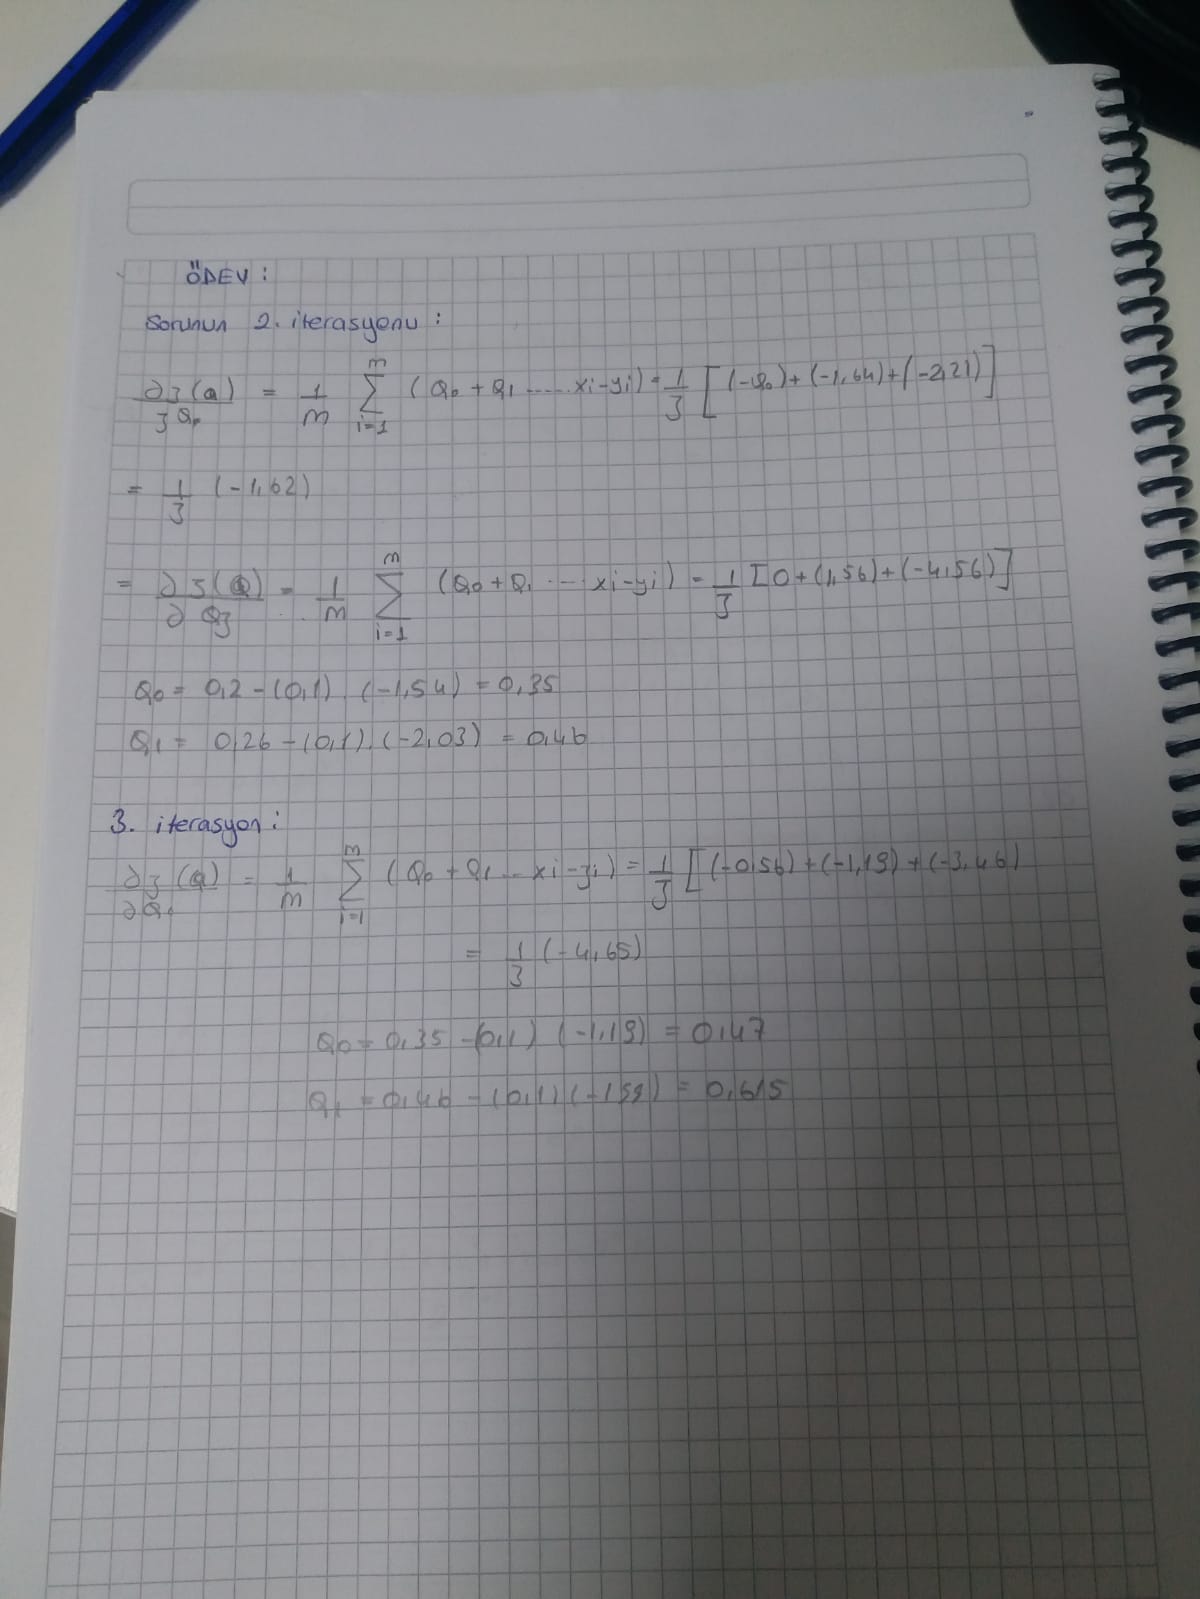 ÖDEV :
Sorunun 2. iterasyonu :
∂J(Q) / ∂Q₀ = 1/m Σ(i=1, m) (Q₀ + Q₁ ...... xi - yi) = 1/3 [ (-Q₀) + (-1,64) + (-2,21) ]
= 1/3 (-1,62)
= ∂J(Q) / ∂Q₃ = 1/m Σ(i=1, m) (Q₀ + Q₁ ... xi - yi) = 1/3 [ 0 + (1,56) + (-4,56) ]
Q₀ = 0,2 - (0,1) . (-1,54) = 0,35
Q₁ = 0,26 - (0,1) . (-2,03) = 0,46
3. iterasyon :
∂J(Q) / ∂Q₁ = 1/m Σ(i=1, m) (Q₀ + Q₁ ... xi - yi) = 1/3 [ (-0,56) + (-1,19) + (-3,46)
= 1/3 (-4,65)
Q₀ = 0,35 - (0,1) (-1,19) = 0,47
Q₁ = 0,46 - (0,1) (-1,59) = 0,615